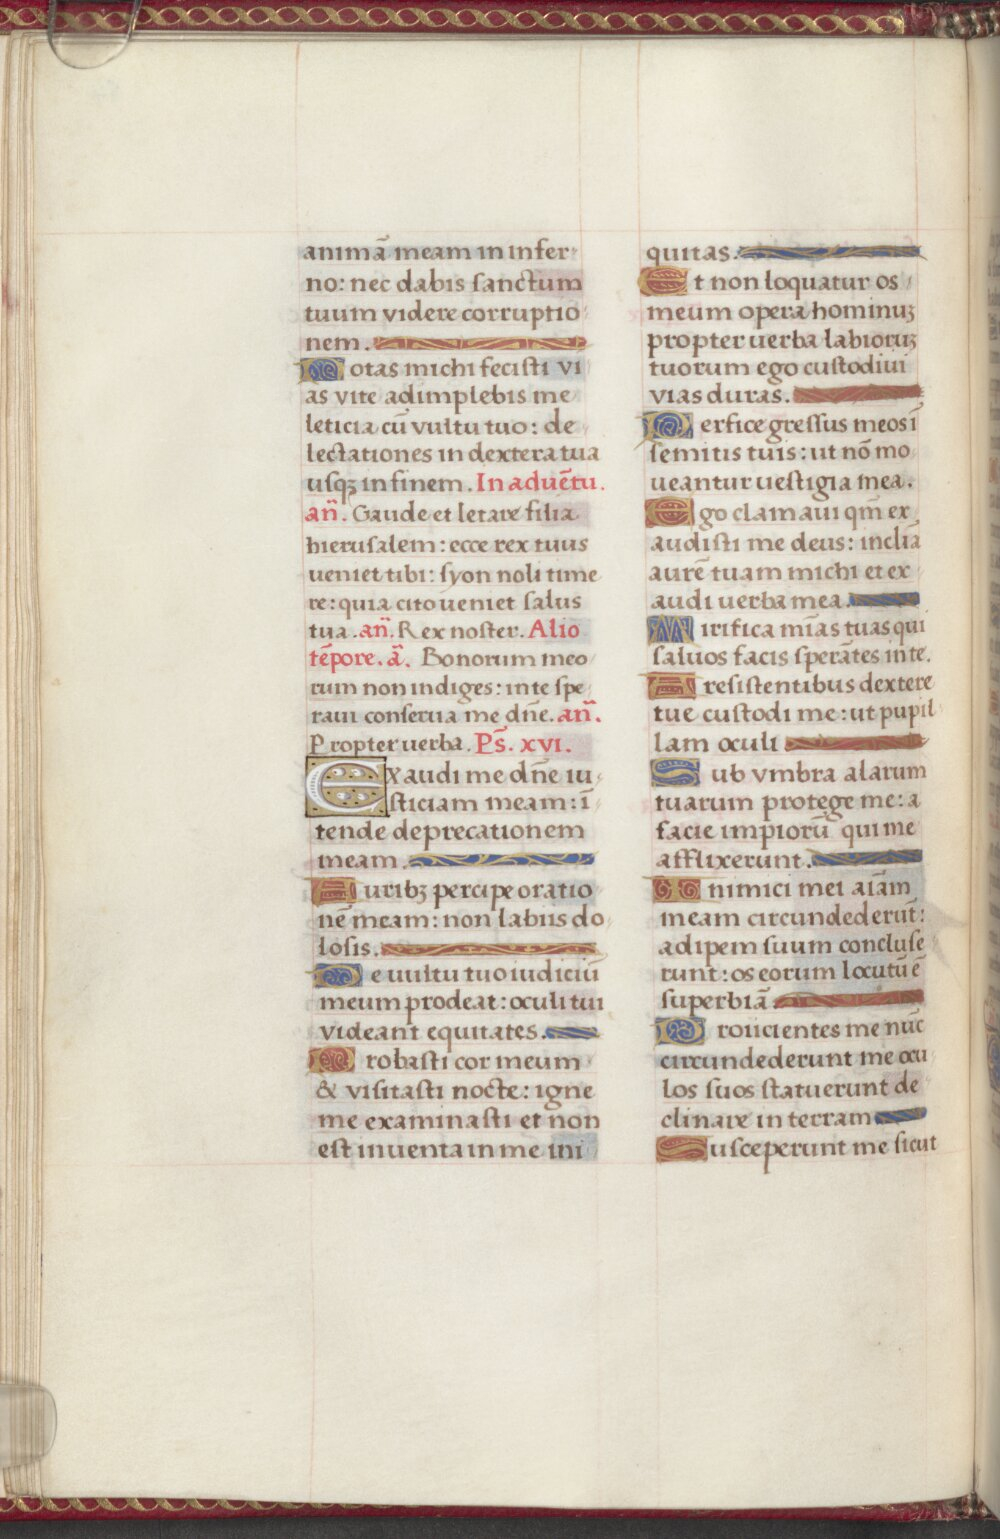 animā meam in infer
no: nec dabis sanctum
tuum videre corruptio
nem.
Notas michi fecisti vi
as vite adimplebis me
leticia cū vultu tuo: de
lectationes in dextera tua
usqꝫ in finem. In aduētu.
an̄. Gaude et letare filia
hierusalem: ecce rex tuus
ueniet tibi: syon noli time
re: quia cito ueniet salus
tua. an̄. Rex noster. Alio
tēpore. ā. Bonorum meo
rum non indiges: in te spe
raui conserua me dn̄e. an̄.
Propter uerba. Ps̄. xvi.
EXaudi me dn̄e iu
sticiam meam: ī
tende deprecationem
meam.
Auribꝫ percipe oratio
nē meam: non labiis do
losis.
De vultu tuo iudiciū
meum prodeat: oculi tui
videant equitates.
Probasti cor meum
& visitasti nocte: igne
me examinasti et non
est inuenta in me ini
quitas.
Et non loquatur os
meum opera hominuꝫ
propter uerba labioruꝫ
tuorum ego custodiui
vias duras.
Perfice gressus meos ī
semitis tuis: ut nō mo
ueantur uestigia mea.
Ego clamaui qm̄ ex
audisti me deus: inclīa
aurē tuam michi et ex
audi uerba mea.
Mirifica mīas tuas qui
saluos facis sperātes in te.
A resistentibus dextere
tue custodi me: ut pupil
lam oculi
Sub vmbra alarum
tuarum protege me: a
facie impiorū qui me
afflixerunt.
Inimici mei aīam
meam circundederūt:
adipem suum concluse
runt: os eorum locutū ē
superbiā
Proiicientes me nūc
circundederunt me ocu
los suos statuerunt de
clinare in terram
Susceperunt me sicut